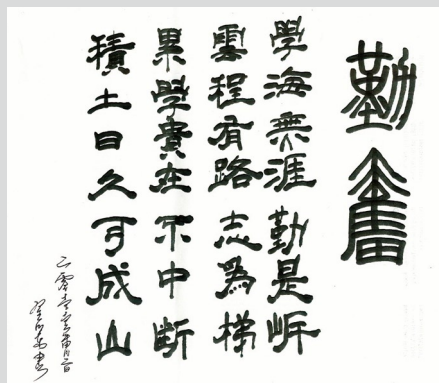 勤奮
學海無涯勤是岸
雲程有路志為梯
累學貴在不中断
積土日久可成山